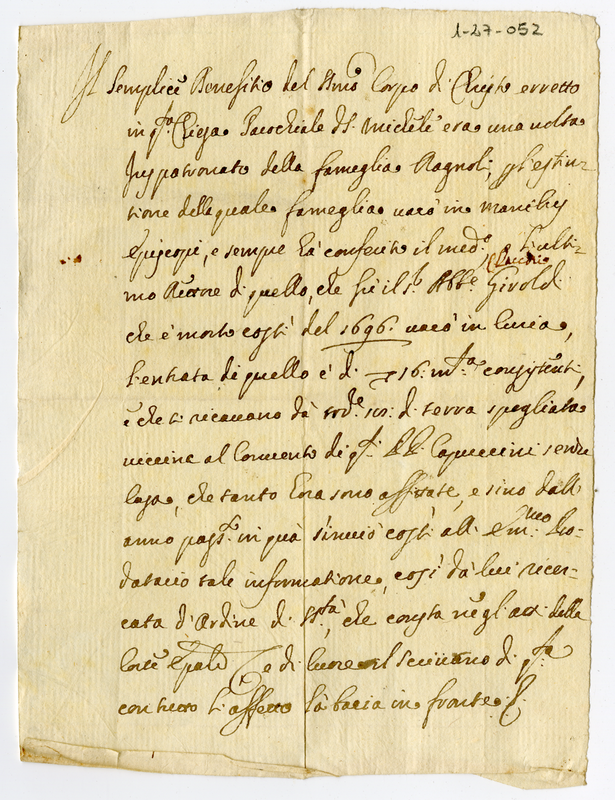 1-27-052
Il Semplice Benefitio del Ssmo Corpo di Christo erretto
in qsta Chiesa Parochiale di S. Michele era una uolta
Juspatronato della fameglia Ragnoli, estin-
tione della quale fameglia uacò in manibus
Episcopi, e sempre hà conferito il medo, e l'ulti-
mo Rettore di quello, che fù il Sr Abbe Giroldi
che è morto costì del 1696. uacò in curia,
l'entrata di quello è di 16: consistenti,
e che si ricauano dà di terra spogliata
uicina al Conuento di qsti PP. Capuccini senza
casa, che tanto hora sono affittate, e sino dall
anno passto in quà s'inuiò costì all Emmo Pro-
datario tale informatione, così dà lui ricer-
cata d'ordine di Sstà, che consta negl'atti della
Corte Epale, e di cuore il
con tutto l'affetto la bacia in fronte.